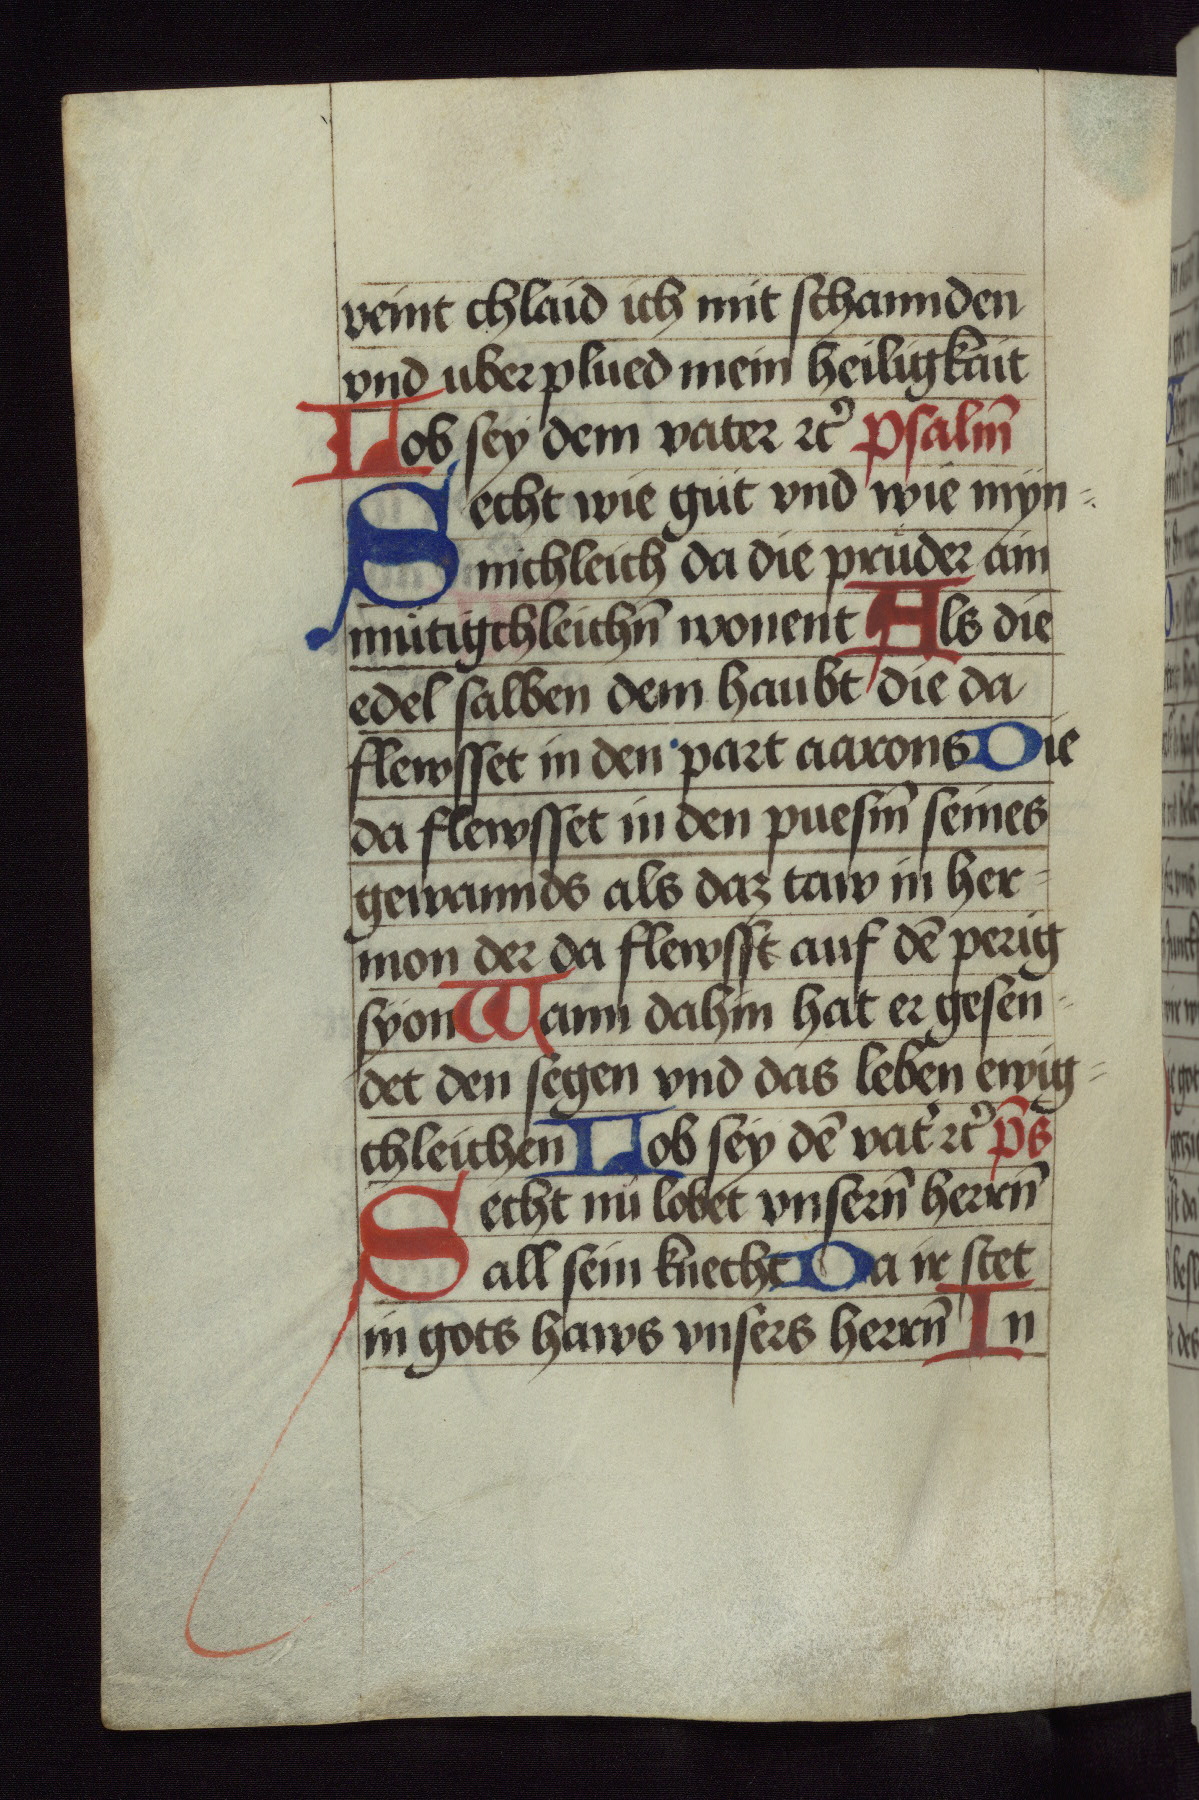 veint chlaid ich mit schannden
vnd uber plued mein heiligkait
Lob sey dem vater ꝛc̉ psalm̄
Secht wie gůt vnd wie mÿn⸗
nichleich da die prüder ain
můtigchleichn̄ wonent Als die
edel salben dem haubt die da
flewsset in den part aarons Die
da flewsset in den puesm̄ seines
gewannds als daz taw in her⸗
mon der da flewsst auf dē perig
syon Wann dahin hat er gesen⸗
det den segen vnd das leben ewig⸗
chleichen Lob sey dē vat̉ ꝛc̉ p̄s
Secht nů lobet vnsern̄ herrn̄
all sein knecht Da ir stet
in gots haws vnsers herrn̄ In